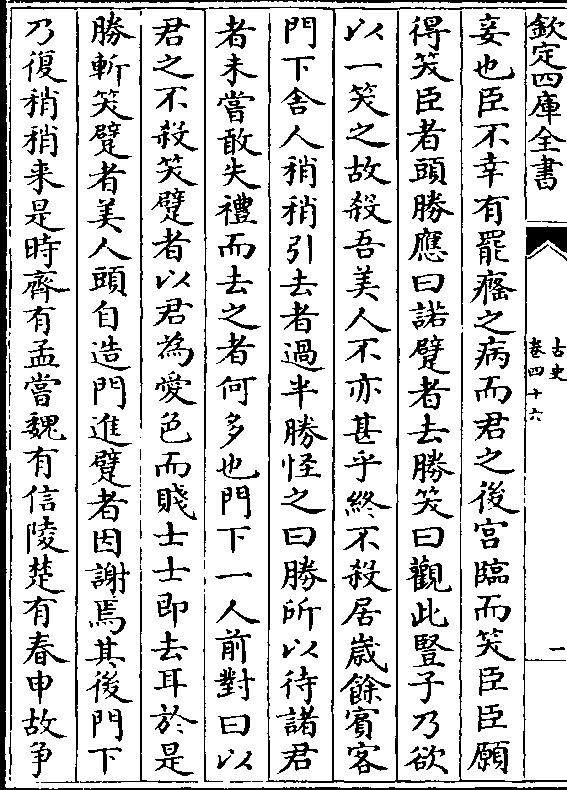 欽定四庫全書
古史
卷四十六
一
妾也臣不幸有罷癃之病而君之後宫臨而笑臣臣願
得笑臣者頭勝應曰諾躄者去勝笑曰觀此豎子乃欲
以一笑之故殺吾美人不亦甚乎終不殺居嵗餘賓客
門下舍人稍稍引去者過半勝怪之曰勝所以待諸君
者未嘗敢失禮而去之者何多也門下一人前對曰以
君之不殺笑躄者以君為愛色而賤士士即去耳於是
勝斬笑躄者美人頭自造門進躄者因謝焉其後門下
乃復稍稍来是時齊有孟嘗魏有信陵楚有春申故爭